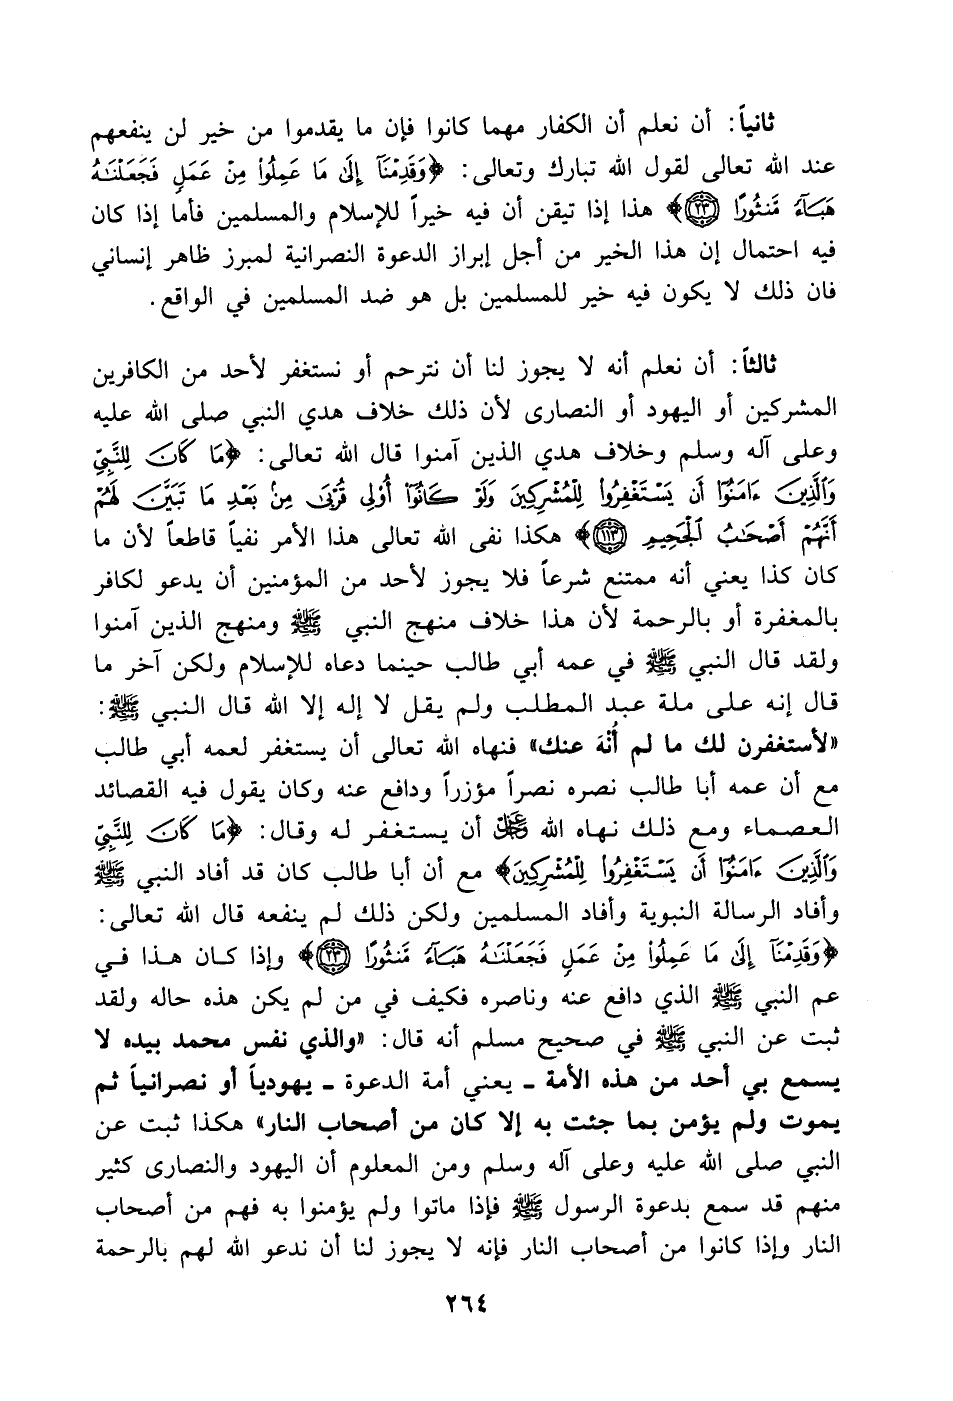 ثانياً: أن نعلم أن الكفار مهما كانوا فإن ما يقدموا من خير لن ينفعهم
عند الله تعالى لقول الله تبارك وتعالى: ﴿وَقَدِمْنَآ إِلَىٰ مَا عَمِلُوا۟ مِنْ عَمَلٍ فَجَعَلْنَـٰهُ
هَبَآءً مَّنثُورًا ﴿٢٣﴾﴾ هذا إذا تيقن أن فيه خيراً للإسلام والمسلمين فأما إذا كان
فيه احتمال إن هذا الخير من أجل إبراز الدعوة النصرانية لمبرز ظاهر إنساني
فان ذلك لا يكون فيه خير للمسلمين بل هو ضد المسلمين في الواقع.
ثالثاً: أن نعلم أنه لا يجوز لنا أن نترحم أو نستغفر لأحد من الكافرين
المشركين أو اليهود أو النصارى لأن ذلك خلاف هدي النبي صلى الله عليه
وعلى آله وسلم وخلاف هدي الذين آمنوا قال الله تعالى: ﴿مَا كَانَ لِلنَّبِيِّ
وَٱلَّذِينَ ءَامَنُوٓا۟ أَن يَسْتَغْفِرُوا۟ لِلْمُشْرِكِينَ وَلَوْ كَانُوٓا۟ أُو۟لِى قُرْبَىٰ مِنۢ بَعْدِ مَا تَبَيَّنَ لَهُمْ
أَنَّهُمْ أَصْحَـٰبُ ٱلْجَحِيمِ ﴿١١٣﴾﴾ هكذا نفى الله تعالى هذا الأمر نفياً قاطعاً لأن ما
كان كذا يعني أنه ممتنع شرعاً فلا يجوز لأحد من المؤمنين أن يدعو لكافر
بالمغفرة أو بالرحمة لأن هذا خلاف منهج النبي ﷺ ومنهج الذين آمنوا
ولقد قال النبي ﷺ في عمه أبي طالب حينما دعاه للإسلام ولكن آخر ما
قال إنه على ملة عبد المطلب ولم يقل لا إله إلا الله قال النبي ﷺ:
«لأستغفرن لك ما لم أُنْهَ عنك» فنهاه الله تعالى أن يستغفر لعمه أبي طالب
مع أن عمه أبا طالب نصره نصراً مؤزراً ودافع عنه وكان يقول فيه القصائد
العصماء ومع ذلك نهاه الله ﷻ أن يستغفر له وقال: ﴿مَا كَانَ لِلنَّبِيِّ
وَٱلَّذِينَ ءَامَنُوٓا۟ أَن يَسْتَغْفِرُوا۟ لِلْمُشْرِكِينَ﴾ مع أن أبا طالب كان قد أفاد النبي ﷺ
وأفاد الرسالة النبوية وأفاد المسلمين ولكن ذلك لم ينفعه قال الله تعالى:
﴿وَقَدِمْنَآ إِلَىٰ مَا عَمِلُوا۟ مِنْ عَمَلٍ فَجَعَلْنَـٰهُ هَبَآءً مَّنثُورًا ﴿٢٣﴾﴾ وإذا كان هذا في
عم النبي ﷺ الذي دافع عنه وناصره فكيف في من لم يكن هذه حاله ولقد
ثبت عن النبي ﷺ في صحيح مسلم أنه قال: «والذي نفس محمد بيده لا
يسمع بي أحد من هذه الأمة ـ يعني أمة الدعوة ـ يهودياً أو نصرانياً ثم
يموت ولم يؤمن بما جئت به إلا كان من أصحاب النار» هكذا ثبت عن
النبي صلى الله عليه وعلى آله وسلم ومن المعلوم أن اليهود والنصارى كثير
منهم قد سمع بدعوة الرسول ﷺ فإذا ماتوا ولم يؤمنوا به فهم من أصحاب
النار وإذا كانوا من أصحاب النار فإنه لا يجوز لنا أن ندعو الله لهم بالرحمة
٢٦٤